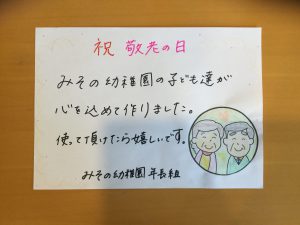 祝 敬老の日
みその幼稚園の子ども達が
心を込めて作りました。
使って頂けたら嬉しいです。
みその幼稚園 年長組